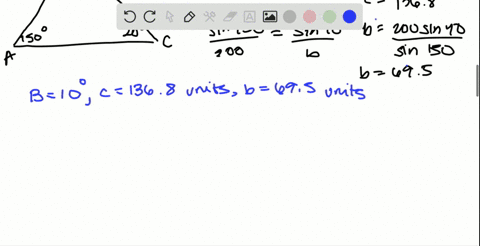 c = 136.8
150°
20°
A
C
sin 150 / 200 = sin 10 / b
b = 200 sin 10 / sin 150
b = 69.5
B = 10°, c = 136.8 units, b = 69.5 units